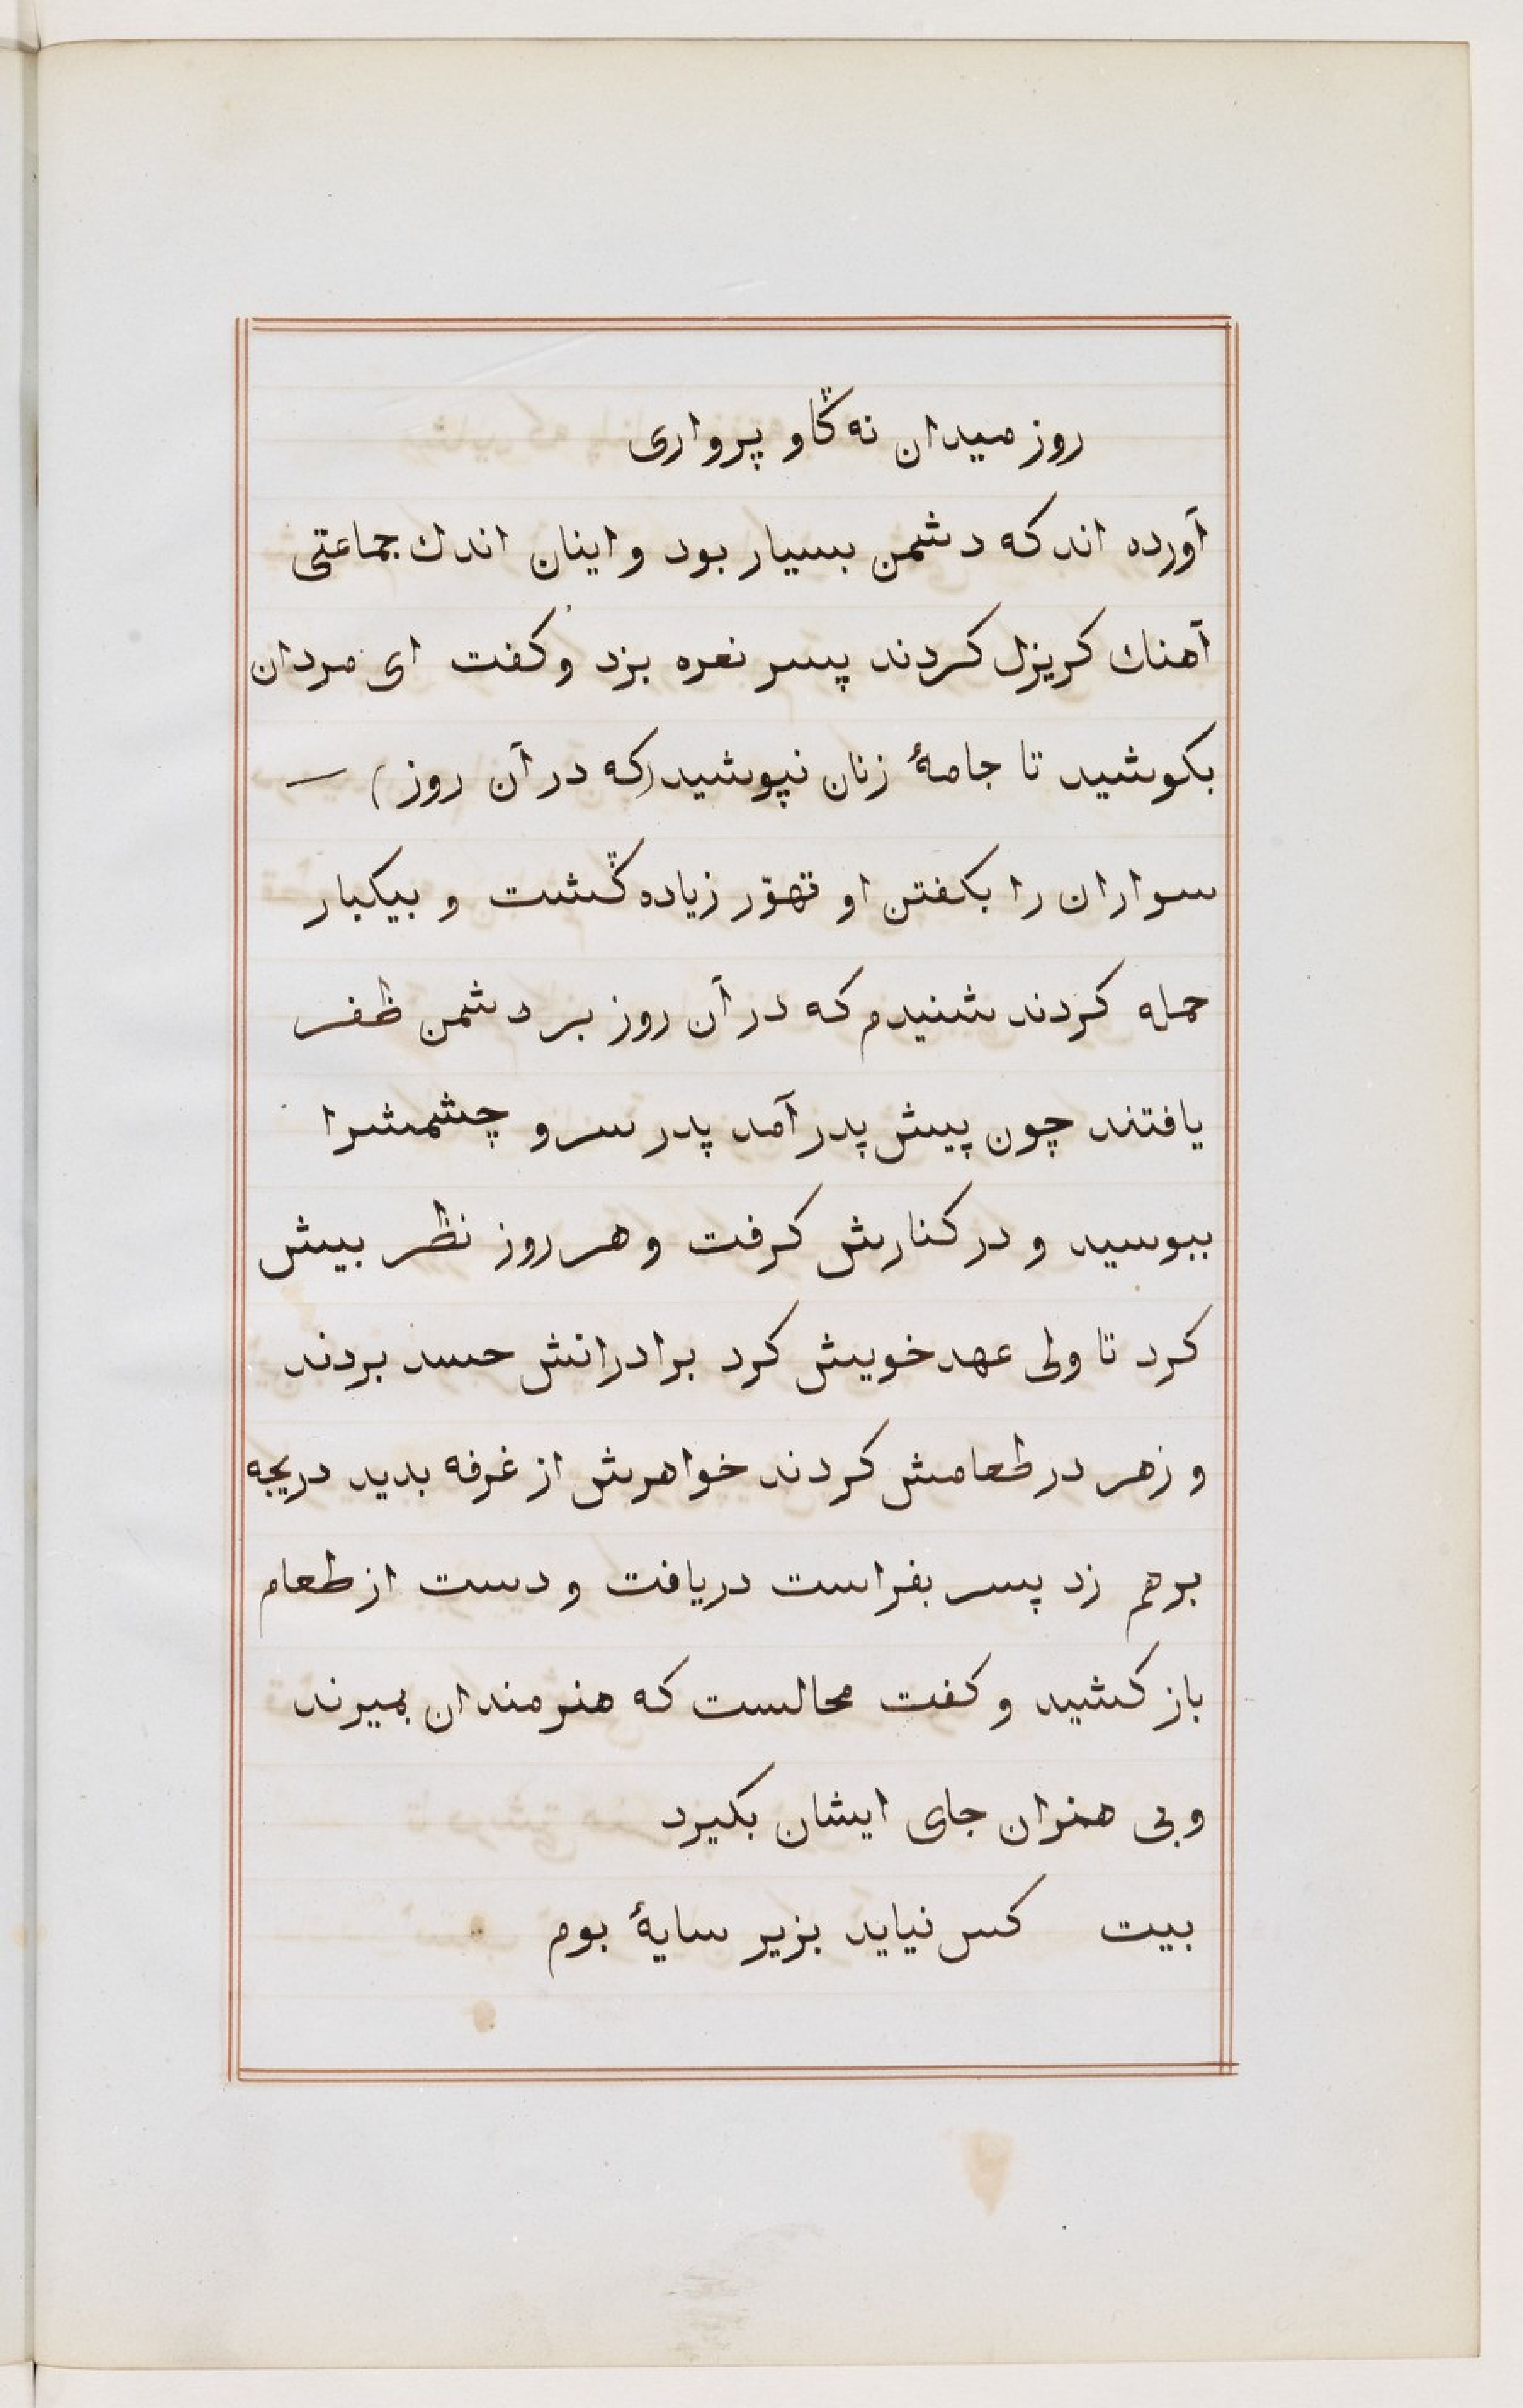 روز میدان نه ڭاو پرواری
آورده اند که دشمن بسیار بود و اینان اندك جماعتی
آهنك کریز کردند پسر نعره بزد وکفت ای مردان
بکوشید تا جامۀ زنان نپوشید (که در آن روز) —
سواران را بکفتن او تهوّر زیاده ڭشت و بیکبار
حمله کردند شنیدم که در آن روز بر دشمن ظفر
یافتند چون پیش پدر آمد پدر سر و چشمشرا
ببوسید و در کنارش کرفت و هر روز نظر بیش
کرد تا ولی عهد خویش کرد برادرانش حسد بردند
و زهر در طعامش کردند خواهرش از غرفه بدید دریجه
برهم زد پسر بفراست دریافت و دست از طعام
باز کشید و کفت محالست که هنرمندان بمیرند
و بی هنران جای ایشان بکیرد
بیت کس نیاید بزیر سایۀ بوم